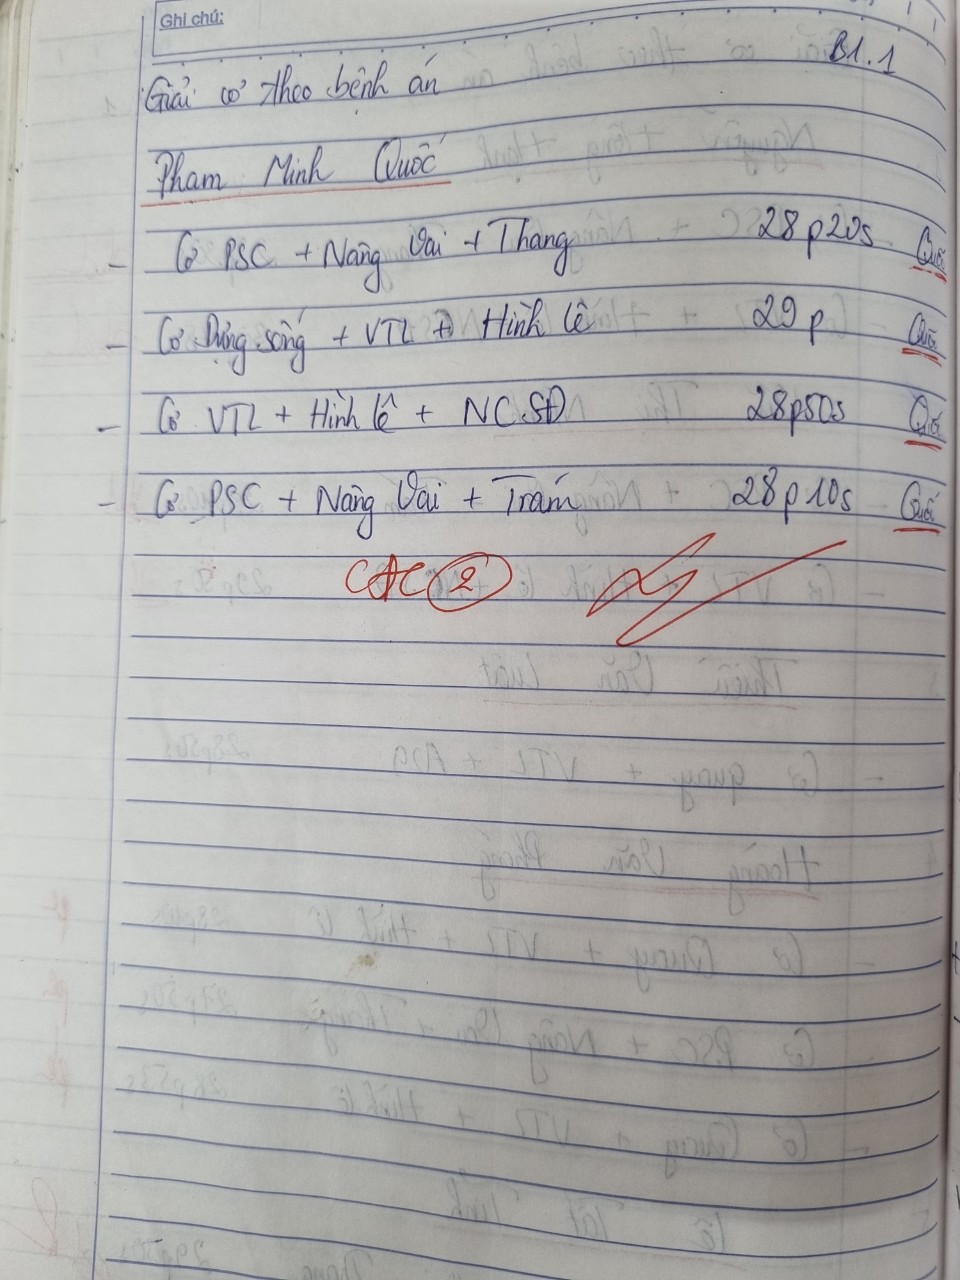 Ghi chú:
B1.1
Giải cơ theo bệnh án
Phạm Minh Quốc
- Cơ PSC + Nâng Vai + Thang 28p20s Quốc
- Cơ Dựng sống + VTL + Hình lê 29p Quốc
- Cơ VTL + Hình lê + NCSĐ 28p50s Quốc
- Cơ PSC + Nâng Vai + Trám 28p10s Quốc
CAC 2